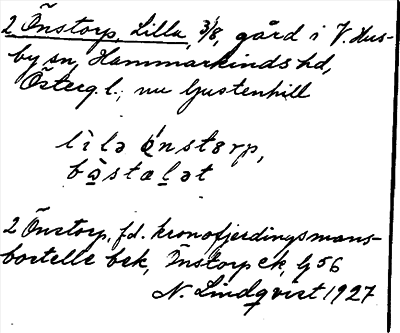 2 Önstorp, Lilla, 3/8, gård i V. Hus-
by sn, Hammarkinds hd,
Österg. l., nu Gustenhill
lìlə ǿnstɵrp,
bo̱stæḻət
2 Önstorp, f.d. kronofjerdingsmans-
bostelle bek, Önstorp ek, Gj 56
N. Lindqvist 1927